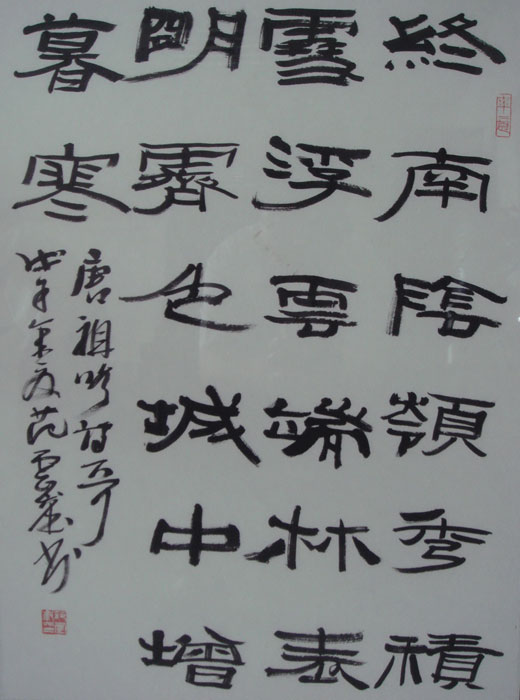 終南陰領秀積
雪浮雲端林表
明霽色城中增
暮寒
唐祖咏詩一首
戊子年夏范雲書